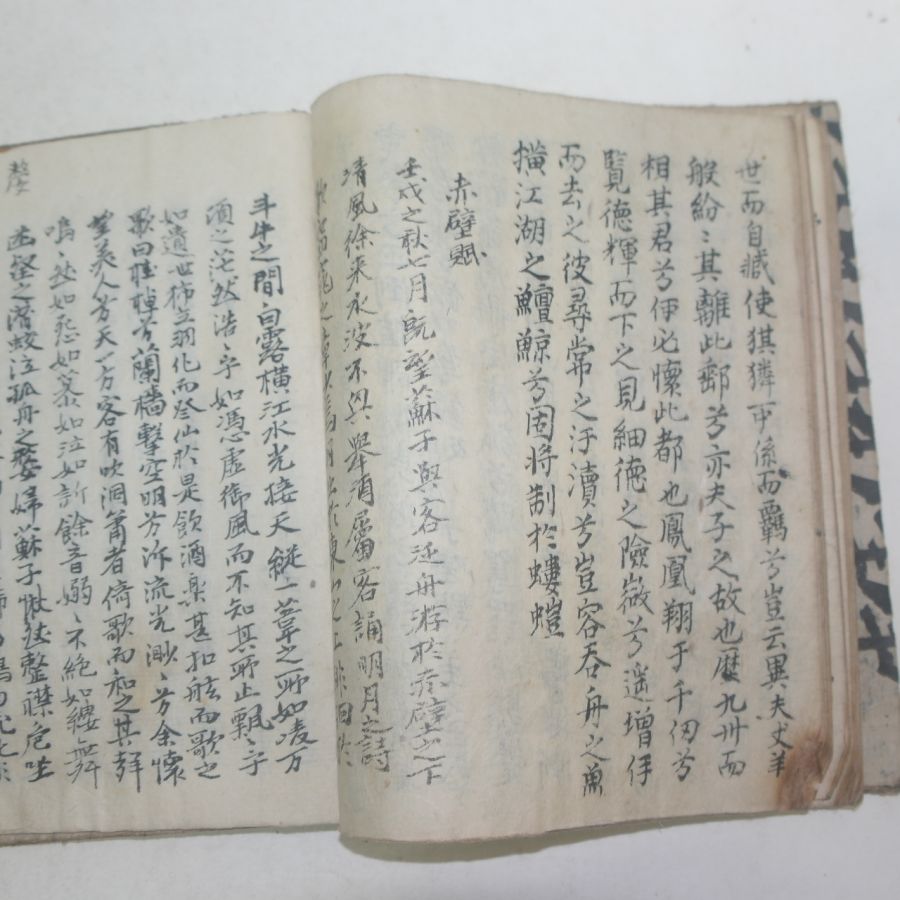 世而自藏使猉獜可係而羈兮豈云異夫犬羊
般紛〻其離此郵兮亦夫子之故也歷九州而
相其君兮何必懷此都也鳳凰翔于千仞兮
覽德輝而下之見細德之險微兮遙增
而去之彼尋常之汙瀆兮豈容吞舟之魚
橫江湖之鱣鯨兮固將制於螻螘
赤壁賦
壬戌之秋七月旣望蘇子與客泛舟游於赤壁之下
淸風徐來水波不興擧酒屬客誦明月之詩
歌窈窕之章少焉月出於東山之上徘徊於
斗牛之間白露橫江水光接天縱一葦之所如凌万
頃之茫然浩〻乎如憑虛御風而不知其所止飄〻乎
如遺世獨立羽化而登仙於是飮酒樂甚扣舷而歌之
歌曰桂棹兮蘭槳擊空明兮泝流光渺〻兮余懷
望美人兮天一方客有吹洞簫者倚歌而和之其聲
嗚〻然如怨如慕如泣如訴餘音嫋〻不絶如縷舞
幽壑之潛蛟泣孤舟之嫠婦蘇子愀然整襟危坐